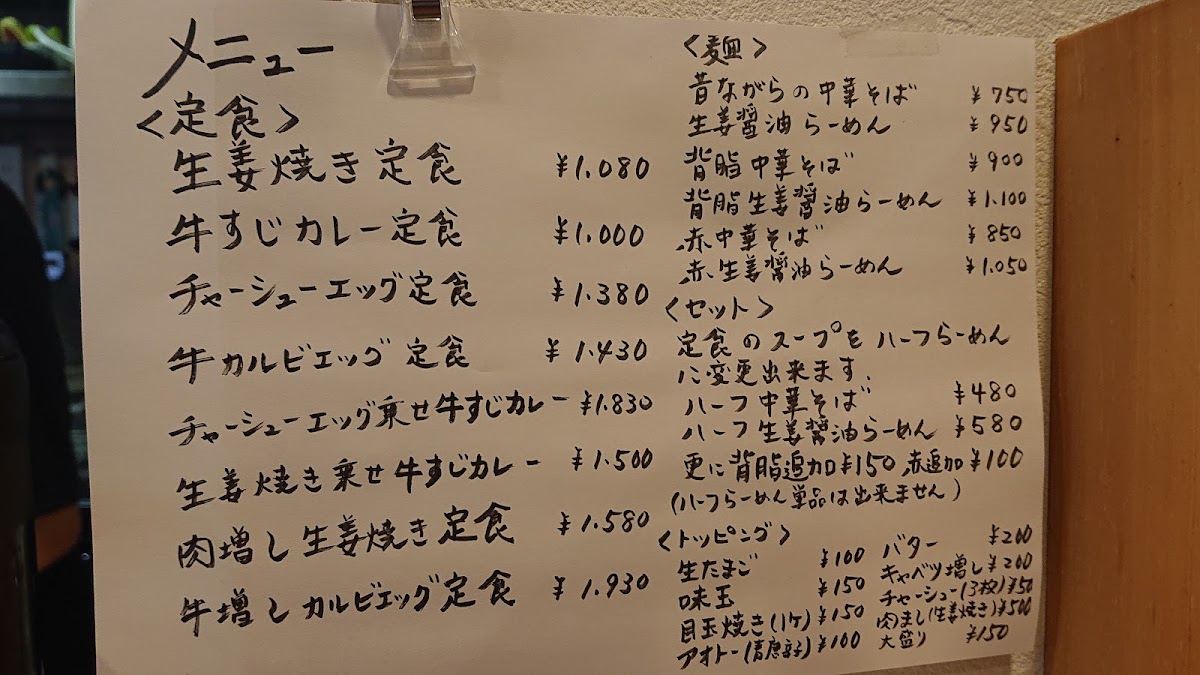 メニュー
〈定食〉
生姜焼き定食 ¥1.080
牛すじカレー定食 ¥1.000
チャーシューエッグ定食 ¥1.380
牛カルビエッグ定食 ¥1.430
チャーシューエッグ乗せ牛すじカレー ¥1.830
生姜焼き乗せ牛すじカレー ¥1.500
肉増し生姜焼き定食 ¥1.580
牛増しカルビエッグ定食 ¥1.930
〈麺〉
昔ながらの中華そば ¥750
生姜醤油らーめん ¥950
背脂中華そば ¥900
背脂生姜醤油らーめん ¥1.100
赤中華そば ¥850
赤生姜醤油らーめん ¥1.050
〈セット〉
定食のスープをハーフらーめん
に変更出来ます.
ハーフ中華そば ¥480
ハーフ生姜醤油らーめん ¥580
更に背脂追加¥150 赤追加¥100
(ハーフらーめん単品は出来ません)
〈トッピング〉
生たまご ¥100
味玉 ¥150
目玉焼き(1ケ) ¥150
アオトー(青唐辛子) ¥100
バター ¥200
キャベツ増し ¥200
チャーシュー(3枚)
肉まし(生姜焼き) ¥500
大盛り ¥150